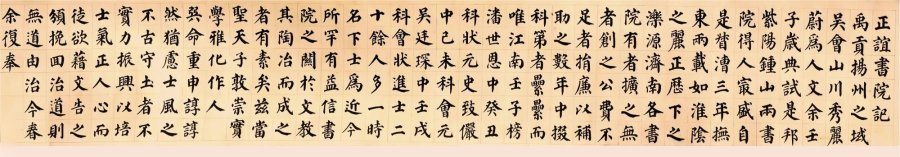 正誼書院記
禹貢揚州之域
吳會山川秀麗
蔚爲人文余壬
子歲典試是邦
紫陽鍾山兩書
院得人㝡盛自
是督漕三年撫
東兩載如淮陰
之麗正歷下之
濼源濟南各書
院有者擴之無
者創之公費不
足者捐廉以補
助之數年中掇
科第者纍纍而
唯江南壬子榜
潘世恩中癸丑
科狀元史致儼
中己未科會元
吳廷琛中壬戌
科會狀進士二
十餘人多一時
名下士爲近今
所罕有益信書
院之關於文教
其陶冶而成之
者有素矣茲當
聖天子敦崇實
學雅化作人
巽命重申諄諄
然猶慮士風之
不古守土者不
實力振興以培
士氣正人心而
徒欲藉文告之
頒挽回治道則
無道由治今春
余復奉